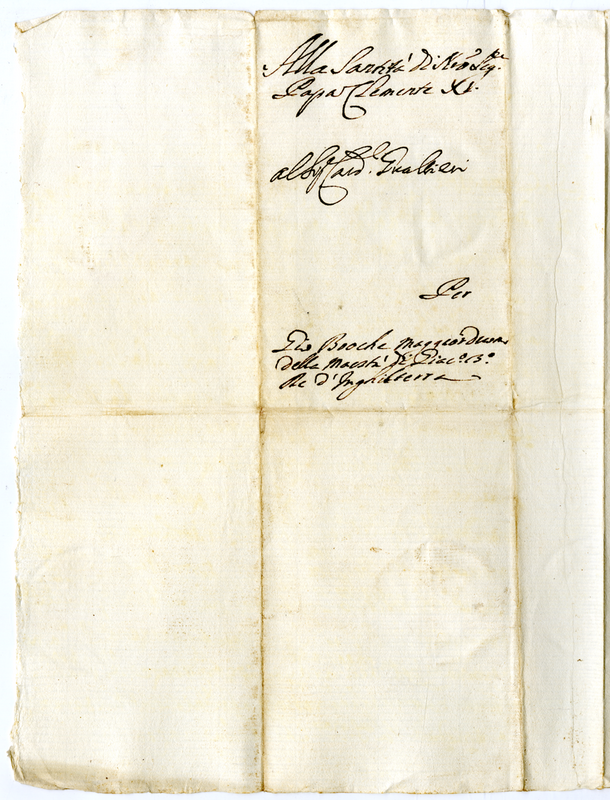 Alla Santità di Nro Sig.re
Papa Clemente XI.
Card.l Gualtieri
Per
Gio Booche Maggiorduomo
della Maestà di Giac.o 3.o
Re d'Inghilterra